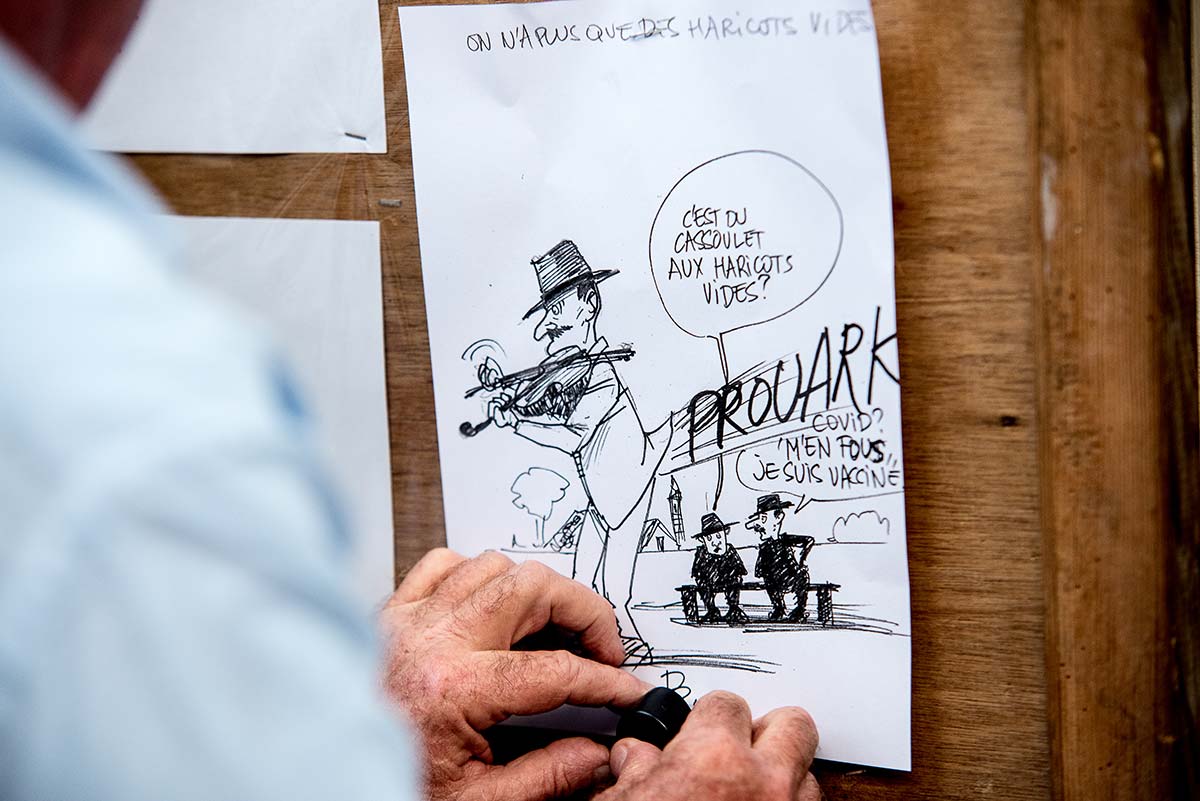 ON N'A PLUS QUE DES HARICOTS VIDES
C'EST DU
CASSOULET
AUX HARICOTS
VIDES?
PROUARK
COVID?
M'EN FOUS,
JE SUIS VACCINÉ